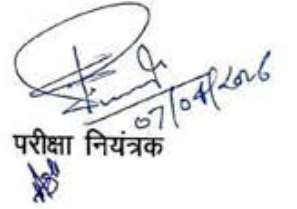 07/04/2026
परीक्षा नियंत्रक